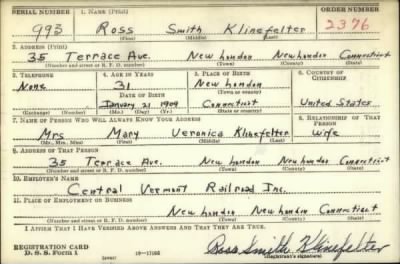 SERIAL NUMBER 1. NAME (Print) ORDER NUMBER
993 Ross Smith Klinefelter 2376
(First) (Middle) (Last)
2. ADDRESS (Print)
35 Terrace Ave. New London New London Connecticut
(Number and street or R. F. D. number) (Town) (County) (State)
3. TELEPHONE 4. AGE IN YEARS 5. PLACE OF BIRTH 6. COUNTRY OF CITIZENSHIP
None 31 New London
DATE OF BIRTH (Town or county)
January 21 1909 Connecticut United States
(Exchange) (Number) (Mo.) (Day) (Yr.) (State or country)
7. NAME OF PERSON WHO WILL ALWAYS KNOW YOUR ADDRESS 8. RELATIONSHIP OF THAT PERSON
Mrs Mary Veronica Klinefelter Wife
(Mr., Mrs., Miss) (First) (Middle) (Last)
9. ADDRESS OF THAT PERSON
35 Terrace Ave. New London New London Connecticut
(Number and street or R. F. D. number) (Town) (County) (State)
10. EMPLOYER'S NAME
Central Vermont Railroad Inc.
11. PLACE OF EMPLOYMENT OR BUSINESS
New London New London Connecticut
(Number and street or R. F. D. number) (Town) (County) (State)
I AFFIRM THAT I HAVE VERIFIED ABOVE ANSWERS AND THAT THEY ARE TRUE.
REGISTRATION CARD Ross Smith Klinefelter
D. S. S. Form 1 (Registrant's signature)